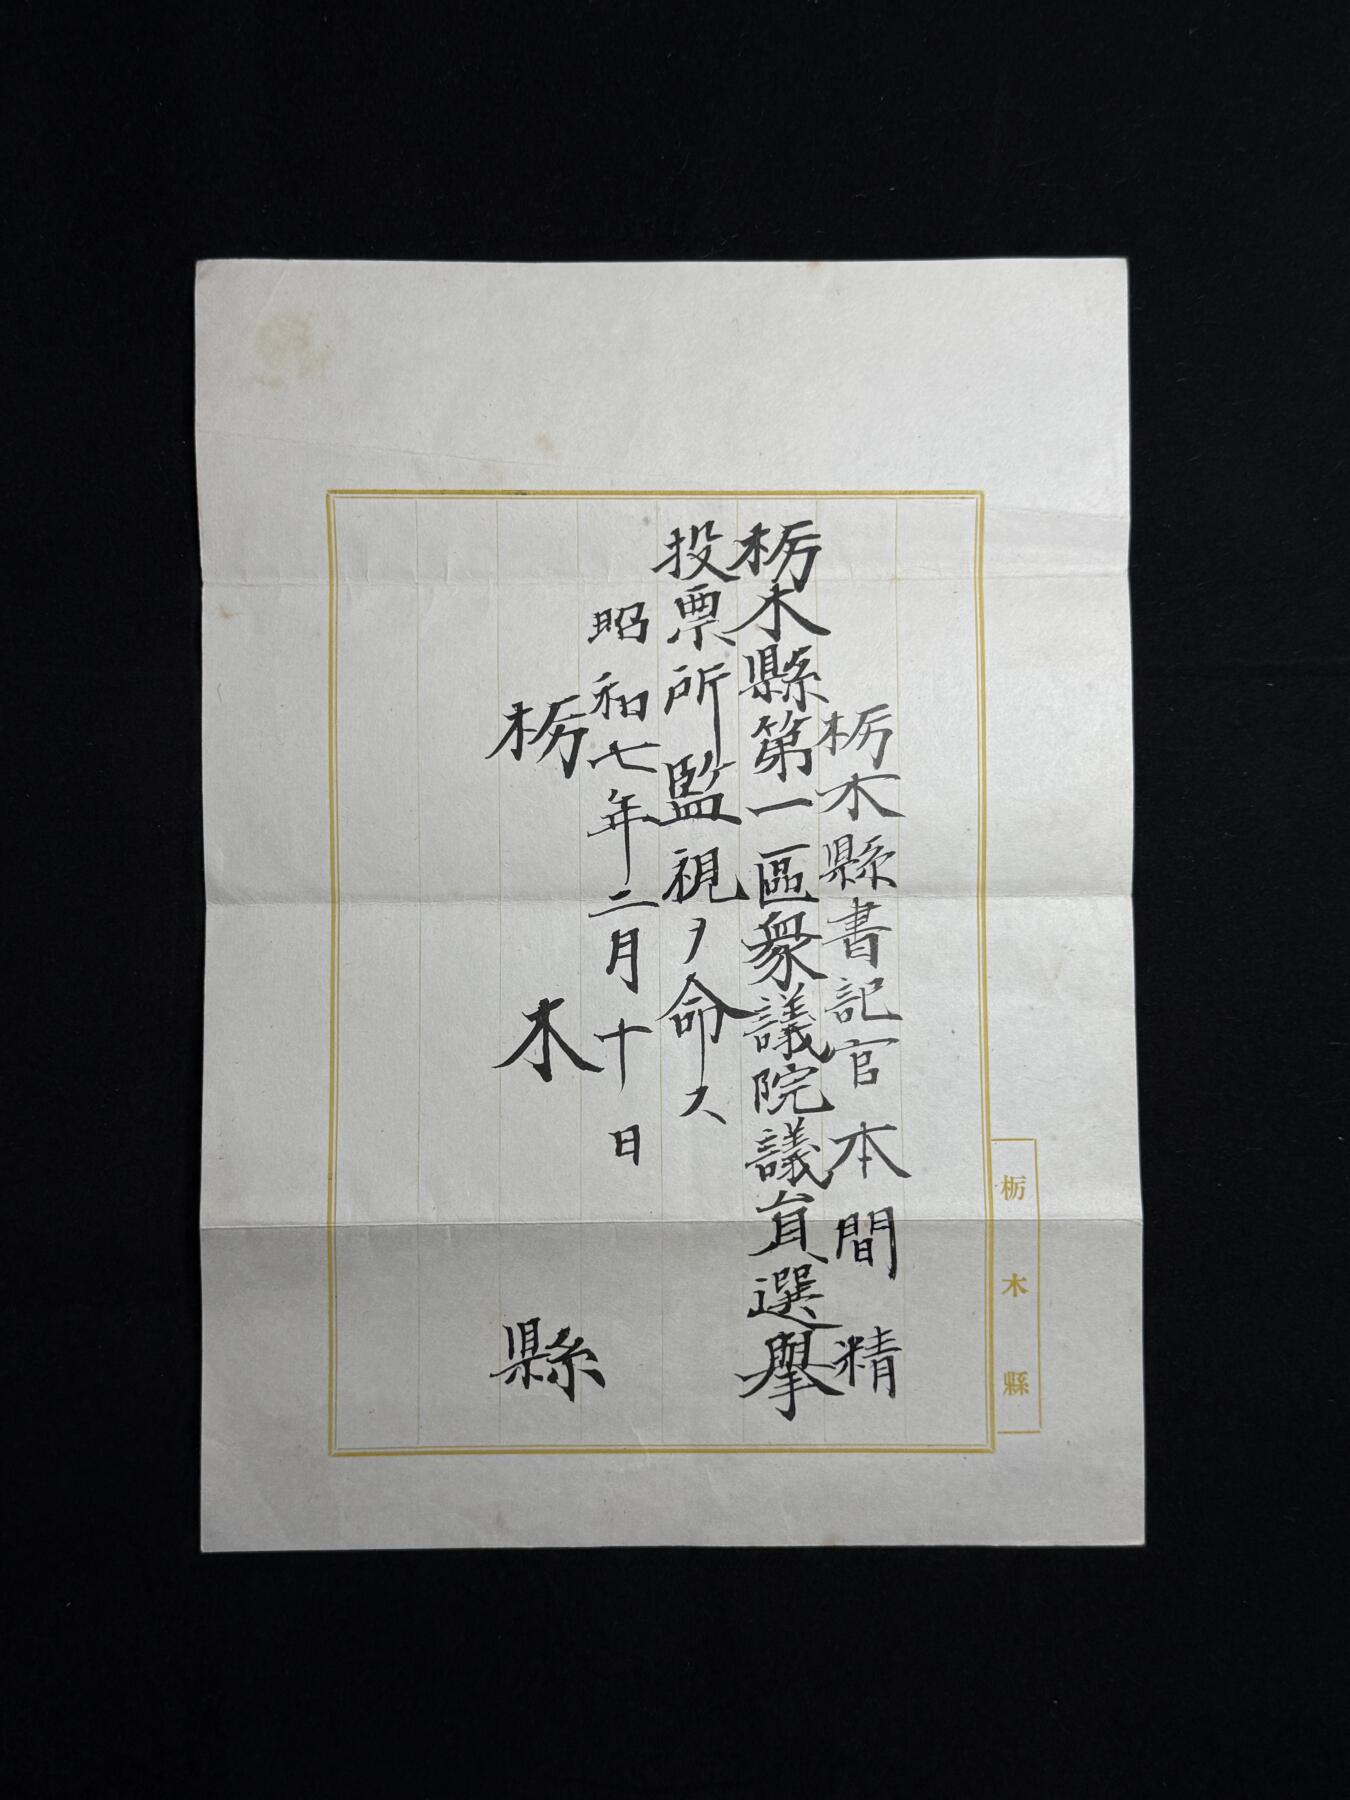 栃木縣書記官本間精
栃木縣第一區衆議院議員選擧
投票所監視ヲ命ス
昭和七年二月十日
栃木縣
栃木縣